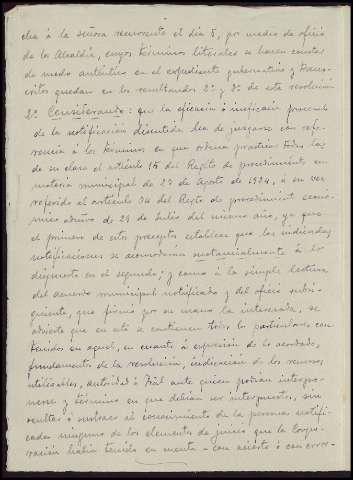 cha á la señora recurrente el día 8, por medio de oficio
de la Alcaldía, cuyos términos literales se hacen constar
de modo auténtico en el expediente gubernativo y trans-
critos quedan en los resultandos 2º y 3º de esta resolución
2º Considerando: que la eficacia ó ineficacia procesal
de la notificación discutida ha de juzgarse con refe-
rencia á los términos en que ordena practicar todas las
de su clase el artículo 15 del Regto de procedimiento en
materia municipal de 23 de Agosto de 1924, á su vez
referido al artículo 34 del Regto de procedimiento econó-
mico admvo de 29 de Julio del mismo año, ya que
el primero de estos preceptos establece que las indicadas
notificaciones se acomodarán sustancialmente á lo
dispuesto en el segundo; y como á la simple lectura
del acuerdo municipal notificado y del oficio subsi-
guiente, que firmó por su mano la interesada, se
advierte que en este se contienen todos los particulares con-
tenidos en aquel, en cuanto á expresión de lo acordado,
fundamentos de la resolución, indicación de los recursos
utilizables, autoridad ó Tral ante quien podían interpo-
nerse y término en que debían ser interpuestos, sin
ocultar ó sustraer al conocimiento de la persona notifi-
cada ninguno de los elementos de juicio que la Corpo-
ración había tenido en cuenta - con acierto ó con error-